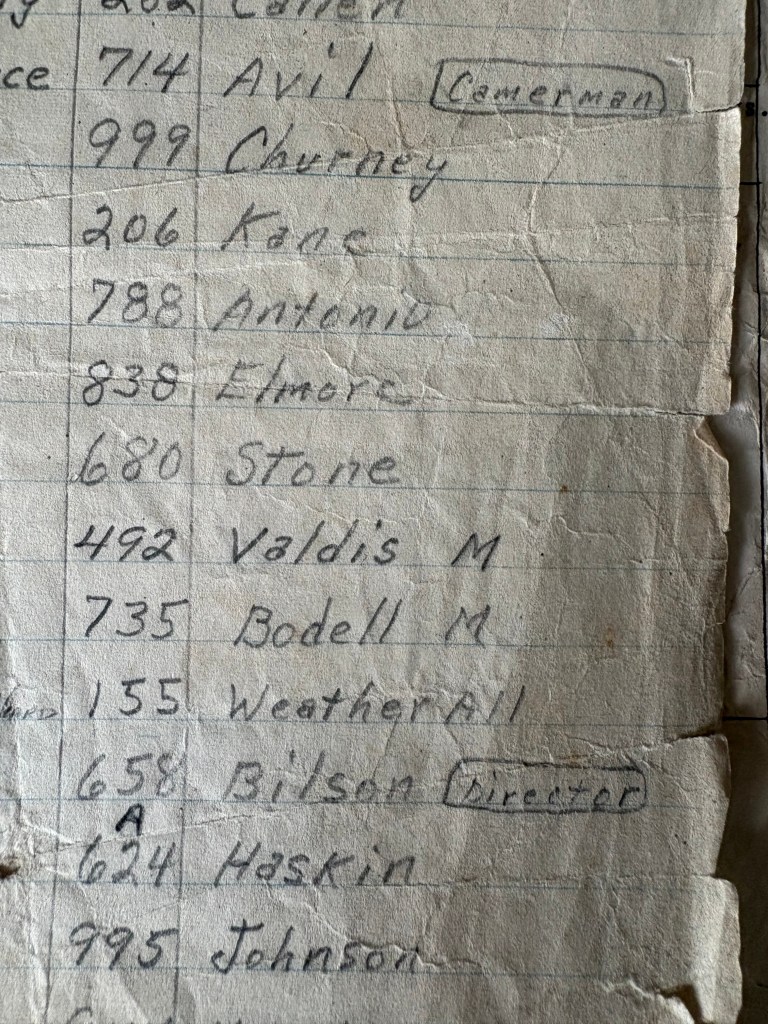 202 Canen
ce 714 Avil Camerman
999 Churney
206 Kane
788 Antonio
838 Elmore
680 Stone
492 Valdis M
735 Bodell M
155 WeatherAll
658 Bilson Director
A
624 Haskin
995 Johnson